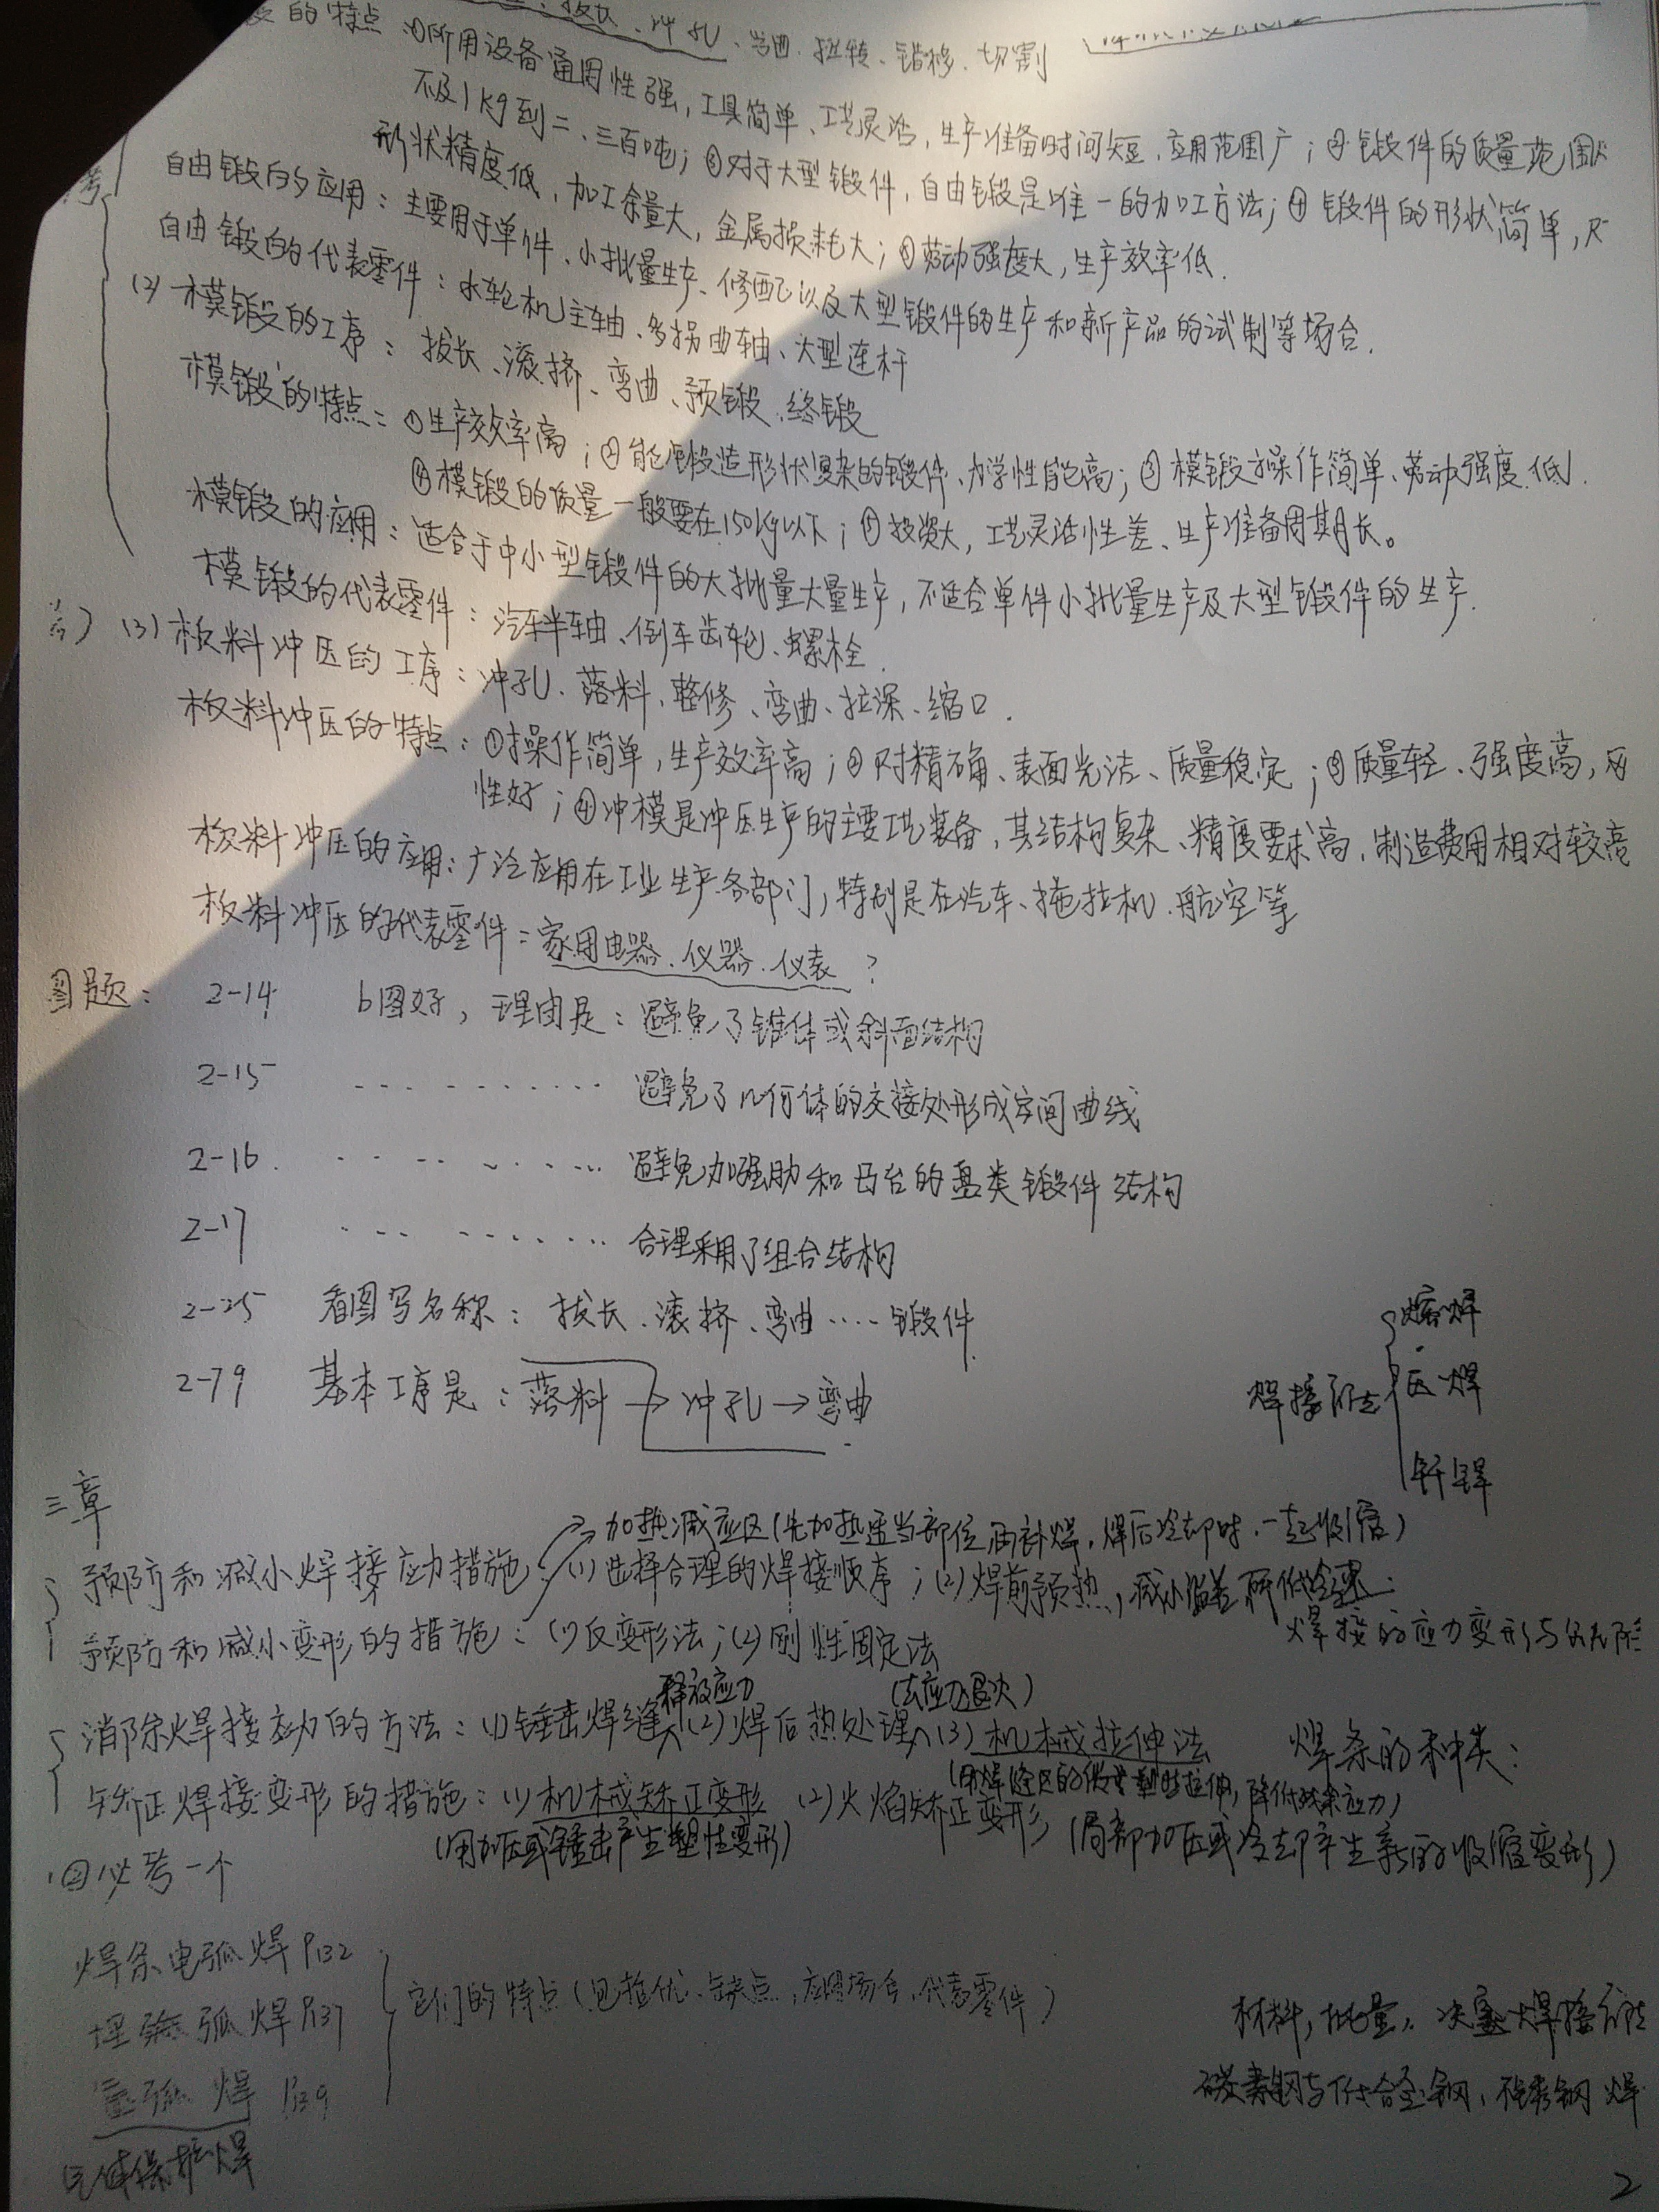 拔长、冲孔、弯曲、扭转、错移、切割
的特点：①所用设备通用性强，工具简单、工艺灵活，生产准备时间短、应用范围广；②锻件的质量范围从
不及1kg到二、三百吨；③对于大型锻件，自由锻是唯一的加工方法；④锻件的形状简单，尺
形状精度低，加工余量大，金属损耗大；⑤劳动强度大，生产效率低．
自由锻的应用：主要用于单件、小批量生产、修配以及大型锻件的生产和新产品的试制等场合．
自由锻的代表零件：水轮机主轴、多拐曲轴、大型连杆
(2) 模锻的工序：拔长、滚挤、弯曲、预锻、终锻
模锻的特点：①生产效率高；②能锻造形状复杂的锻件、力学性能高；③模锻操作简单、劳动强度低．
④模锻的质量一般要在150kg以下；⑤投资大，工艺灵活性差、生产准备周期长。
模锻的应用：适合于中小型锻件的大批量大量生产，不适合单件小批量生产及大型锻件的生产．
模锻的代表零件：汽车半轴、倒车齿轮、螺栓．
(3) 板料冲压的工序：冲孔、落料、整修、弯曲、拉深、缩口．
板料冲压的特点：①操作简单，生产效率高；②尺寸精确、表面光洁、质量稳定；③质量轻、强度高，刚
性好；④冲模是冲压生产的主要工艺装备，其结构复杂、精度要求高，制造费用相对较高
板料冲压的应用：广泛应用在工业生产各部门，特别是在汽车、拖拉机、航空等
板料冲压的代表零件：家用电器、仪器、仪表？
图题： 2-14 b图好，理由是：避免了锥体或斜面结构
2-15 ………… 避免了几何体的交接处形成空间曲线
2-16 ………… 避免加强肋和凸台的盘类锻件结构
2-17 ………… 合理采用了组合结构
2-25 看图写名称：拔长、滚挤、弯曲……锻件
2-79 基本工序是：落料→冲孔→弯曲
焊接方法 熔焊
压焊
钎焊
三章
加热减应区(先加热适当部位再补焊，焊后冷却时，一起收缩)
预防和减小焊接应力措施：(1)选择合理的焊接顺序；(2)焊前预热，减小温差 降低冷速．
预防和减小变形的措施：(1)反变形法；(2)刚性固定法
焊接的应力变形与
消除焊接应力的方法：(1)锤击焊缝 释放应力 (2)焊后热处理 (去应力退火) (3)机械拉伸法
焊条的种类：
矫正焊接变形的措施：(1)机械矫正变形 (2)火焰矫正变形
(用加压或锤击产生塑性变形) (局部加压或冷却产生新的收缩变形)
图必考一个
焊条电弧焊 P132
埋弧焊 P137
氩弧焊 P139
气体保护焊
它们的特点(包括优、缺点，应用场合，代表零件)
材料，批量，决定焊接方法
碳素钢与低合金钢，不锈钢焊
2